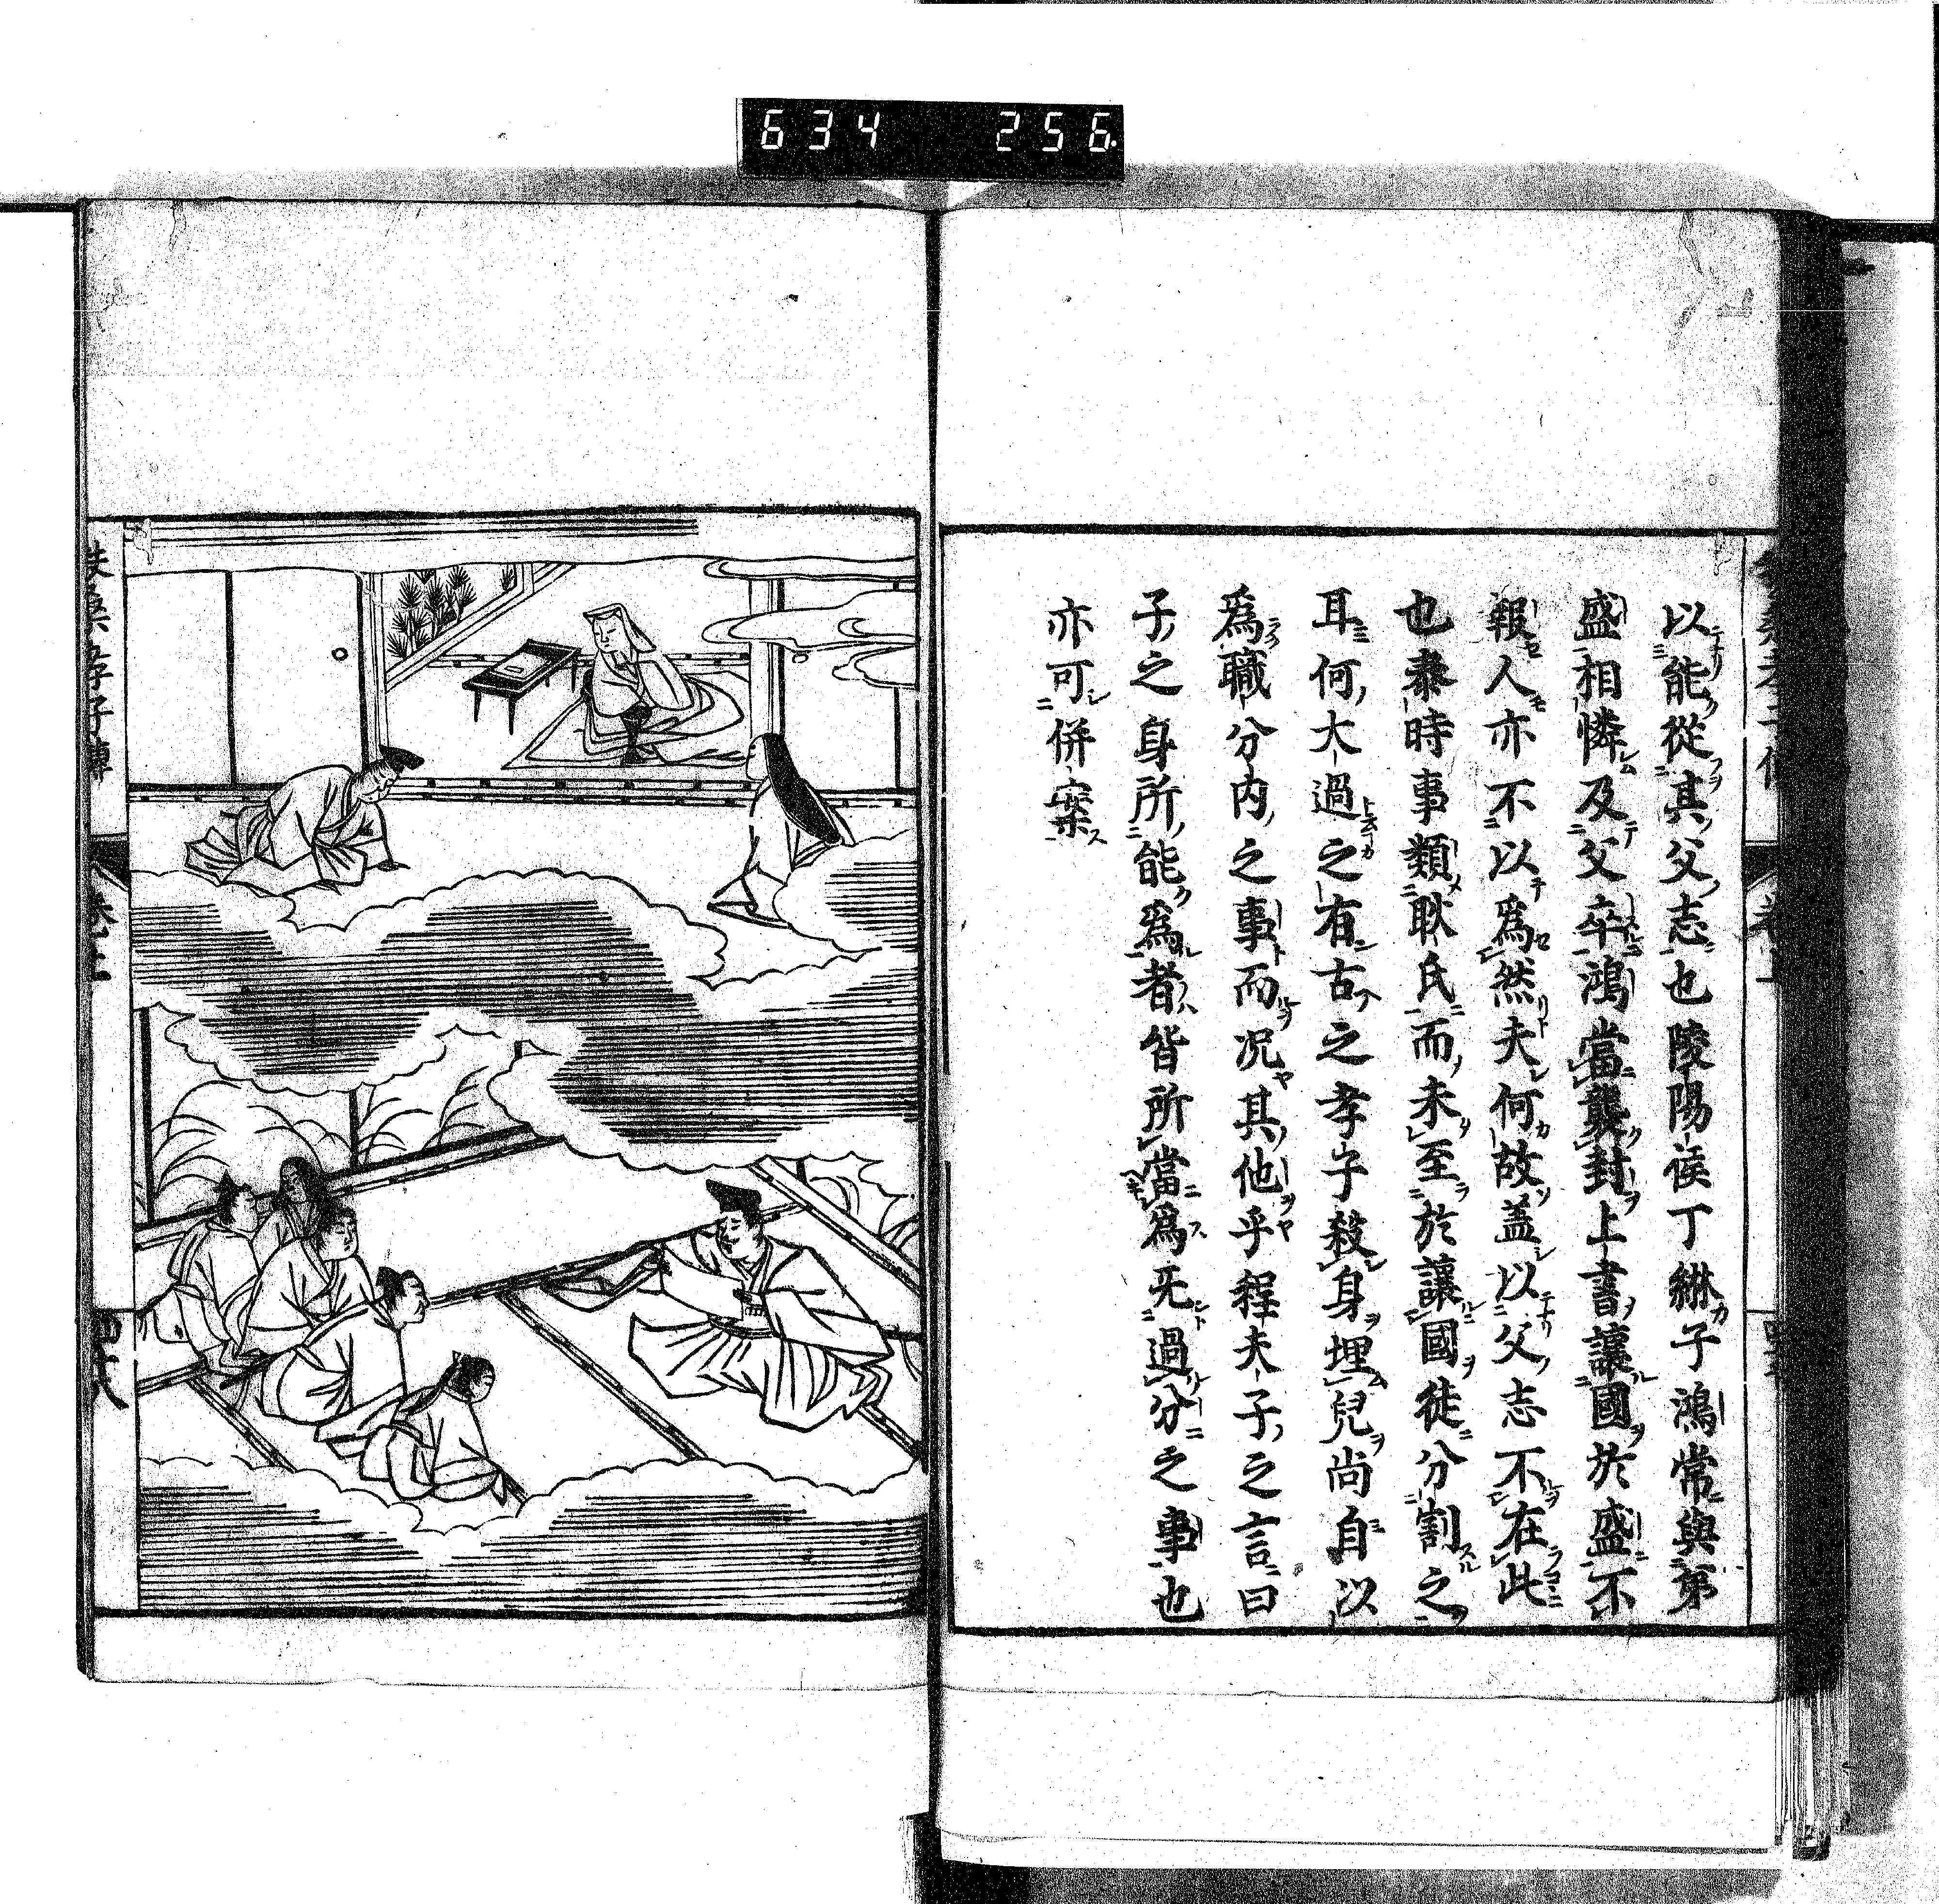 634 256
以能從其父志也陵陽侯丁綝子鴻常與第
盛相憐及父卒鴻當襲封上書讓國於盛不
報人亦不以爲然夫何故蓋以父志不在此
也泰時事類耿氏而未至於讓國徒分割之
耳何大過之有古之孝子殺身埋兒尚自以
爲職分内之事而况其他乎程夫子之言曰
子之身所能爲者皆所當爲无過分之事也
亦可併案
扶桑孝子傳
卷上
四十八